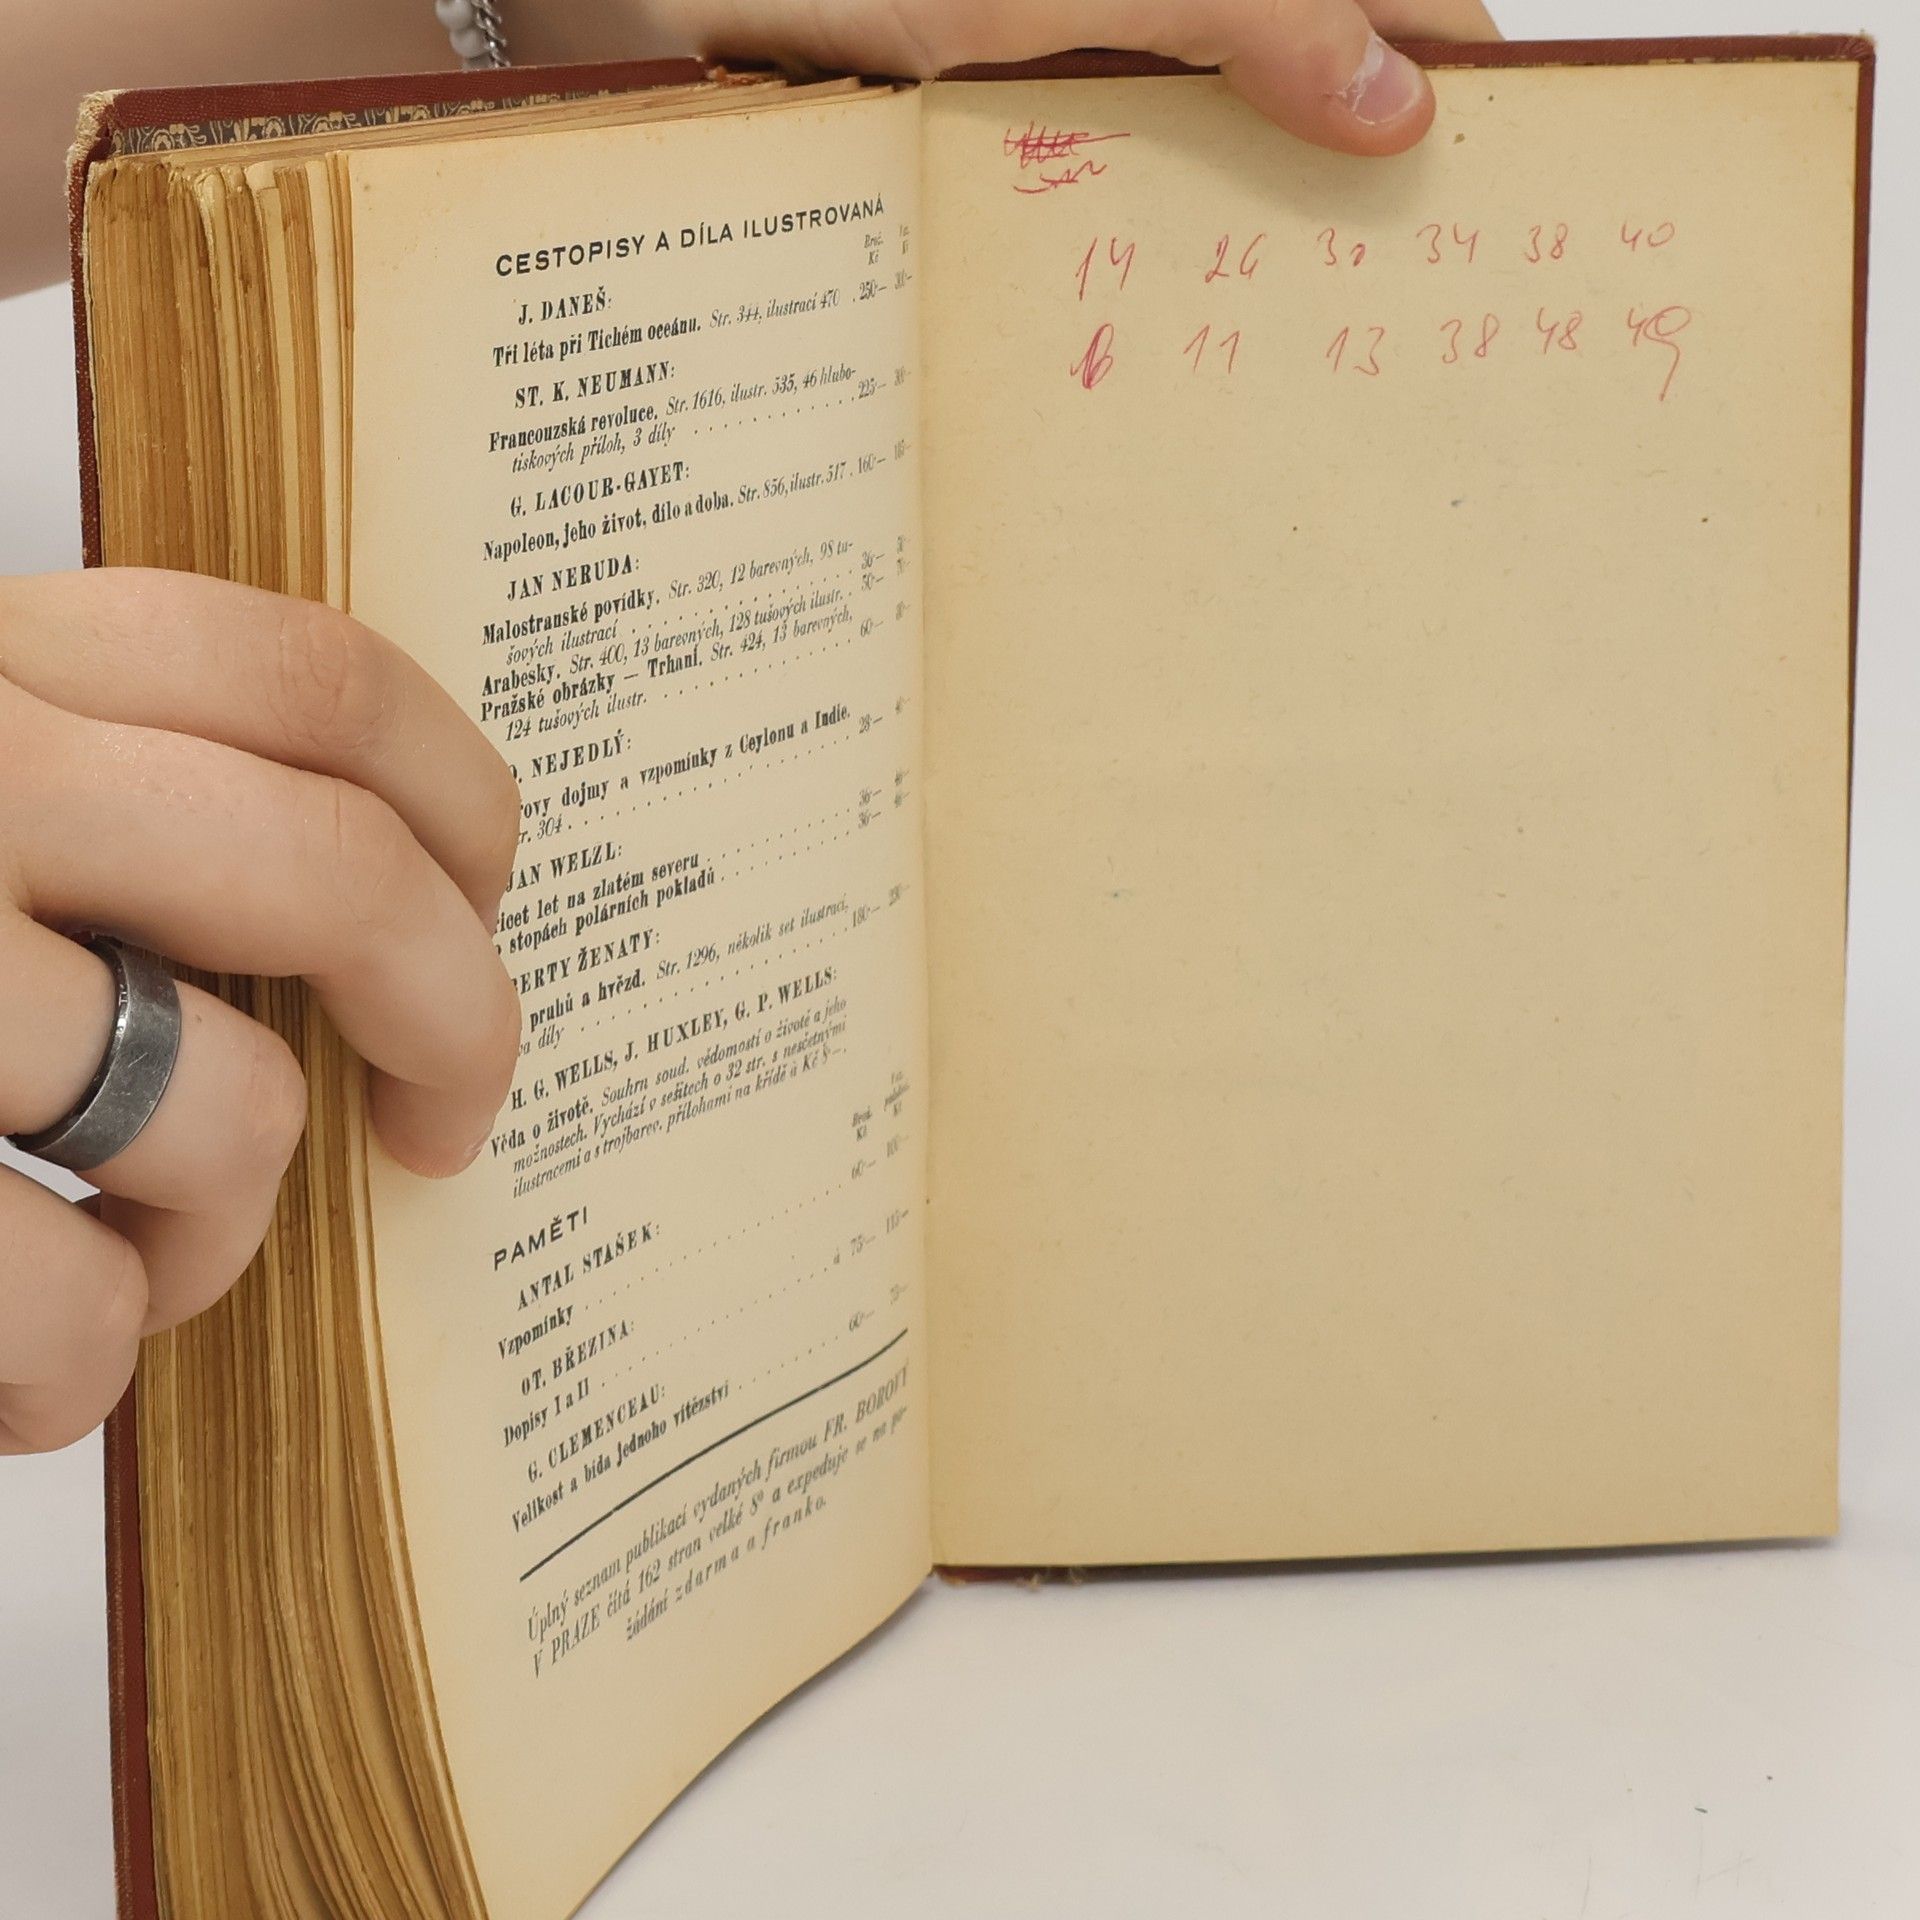 CESTOPISY A DÍLA ILUSTROVANÁ
Brož. Kč
J. DANEŠ:
Tři léta při Tichém oceánu. Str. 344, ilustrací 470 . 250·—
ST. K. NEUMANN:
Francouzská revoluce. Str. 1616, ilustr. 535, 46 hlubo-
tiskových příloh, 3 díly . . . . . . . . . 225·—
G. LACOUR-GAYET:
Napoleon, jeho život, dílo a doba. Str. 856, ilustr. 517 . 160·—
JAN NERUDA:
Malostranské povídky. Str. 320, 12 barevných, 98 tu-
šových ilustrací . . . . . . . . . . . 36·—
Arabesky. Str. 400, 13 barevných, 128 tušových ilustr. . 50·—
Pražské obrázky — Trhani. Str. 424, 13 barevných,
124 tušových ilustr. . . . . . . . . . . 60·—
O. NEJEDLÝ:
dojmy a vzpomínky z Ceylonu a Indie.
304 . . . . . . . . . . . . . 28·—
JAN WELZL:
let na zlatém severu . . . . . . . . 36·—
stopách polárních pokladů . . . . . . . 36·—
ŽENATY:
pruhů a hvězd. Str. 1296, několik set ilustrací,
díly . . . . . . . . . . . . . . 180·—
H. G. WELLS, J. HUXLEY, G. P. WELLS:
Věda o životě. Souhrn soud. vědomostí o životě a jeho
možnostech. Vychází v sešitech o 32 str. s nesčetnými
ilustracemi a s trojbarev. přílohami na křídě à Kč 8·—.
PAMĚTI
Brož. Kč
ANTAL STAŠEK:
Vzpomínky . . . . . . . . . . . . 60·— 100·—
OT. BŘEZINA:
Dopisy I a II . . . . . . . . . . . à 75·— 115·—
G. CLEMENCEAU:
Velikost a bída jednoho vítězství . . . . . . 60·— 75·—
Úplný seznam publikací vydaných firmou FR. BOROVÝ
V PRAZE čítá 162 stran velké 8° a expeduje se na po-
žádání zdarma a franko.
14 26 30 34 38 40
6 11 13 38 48 49